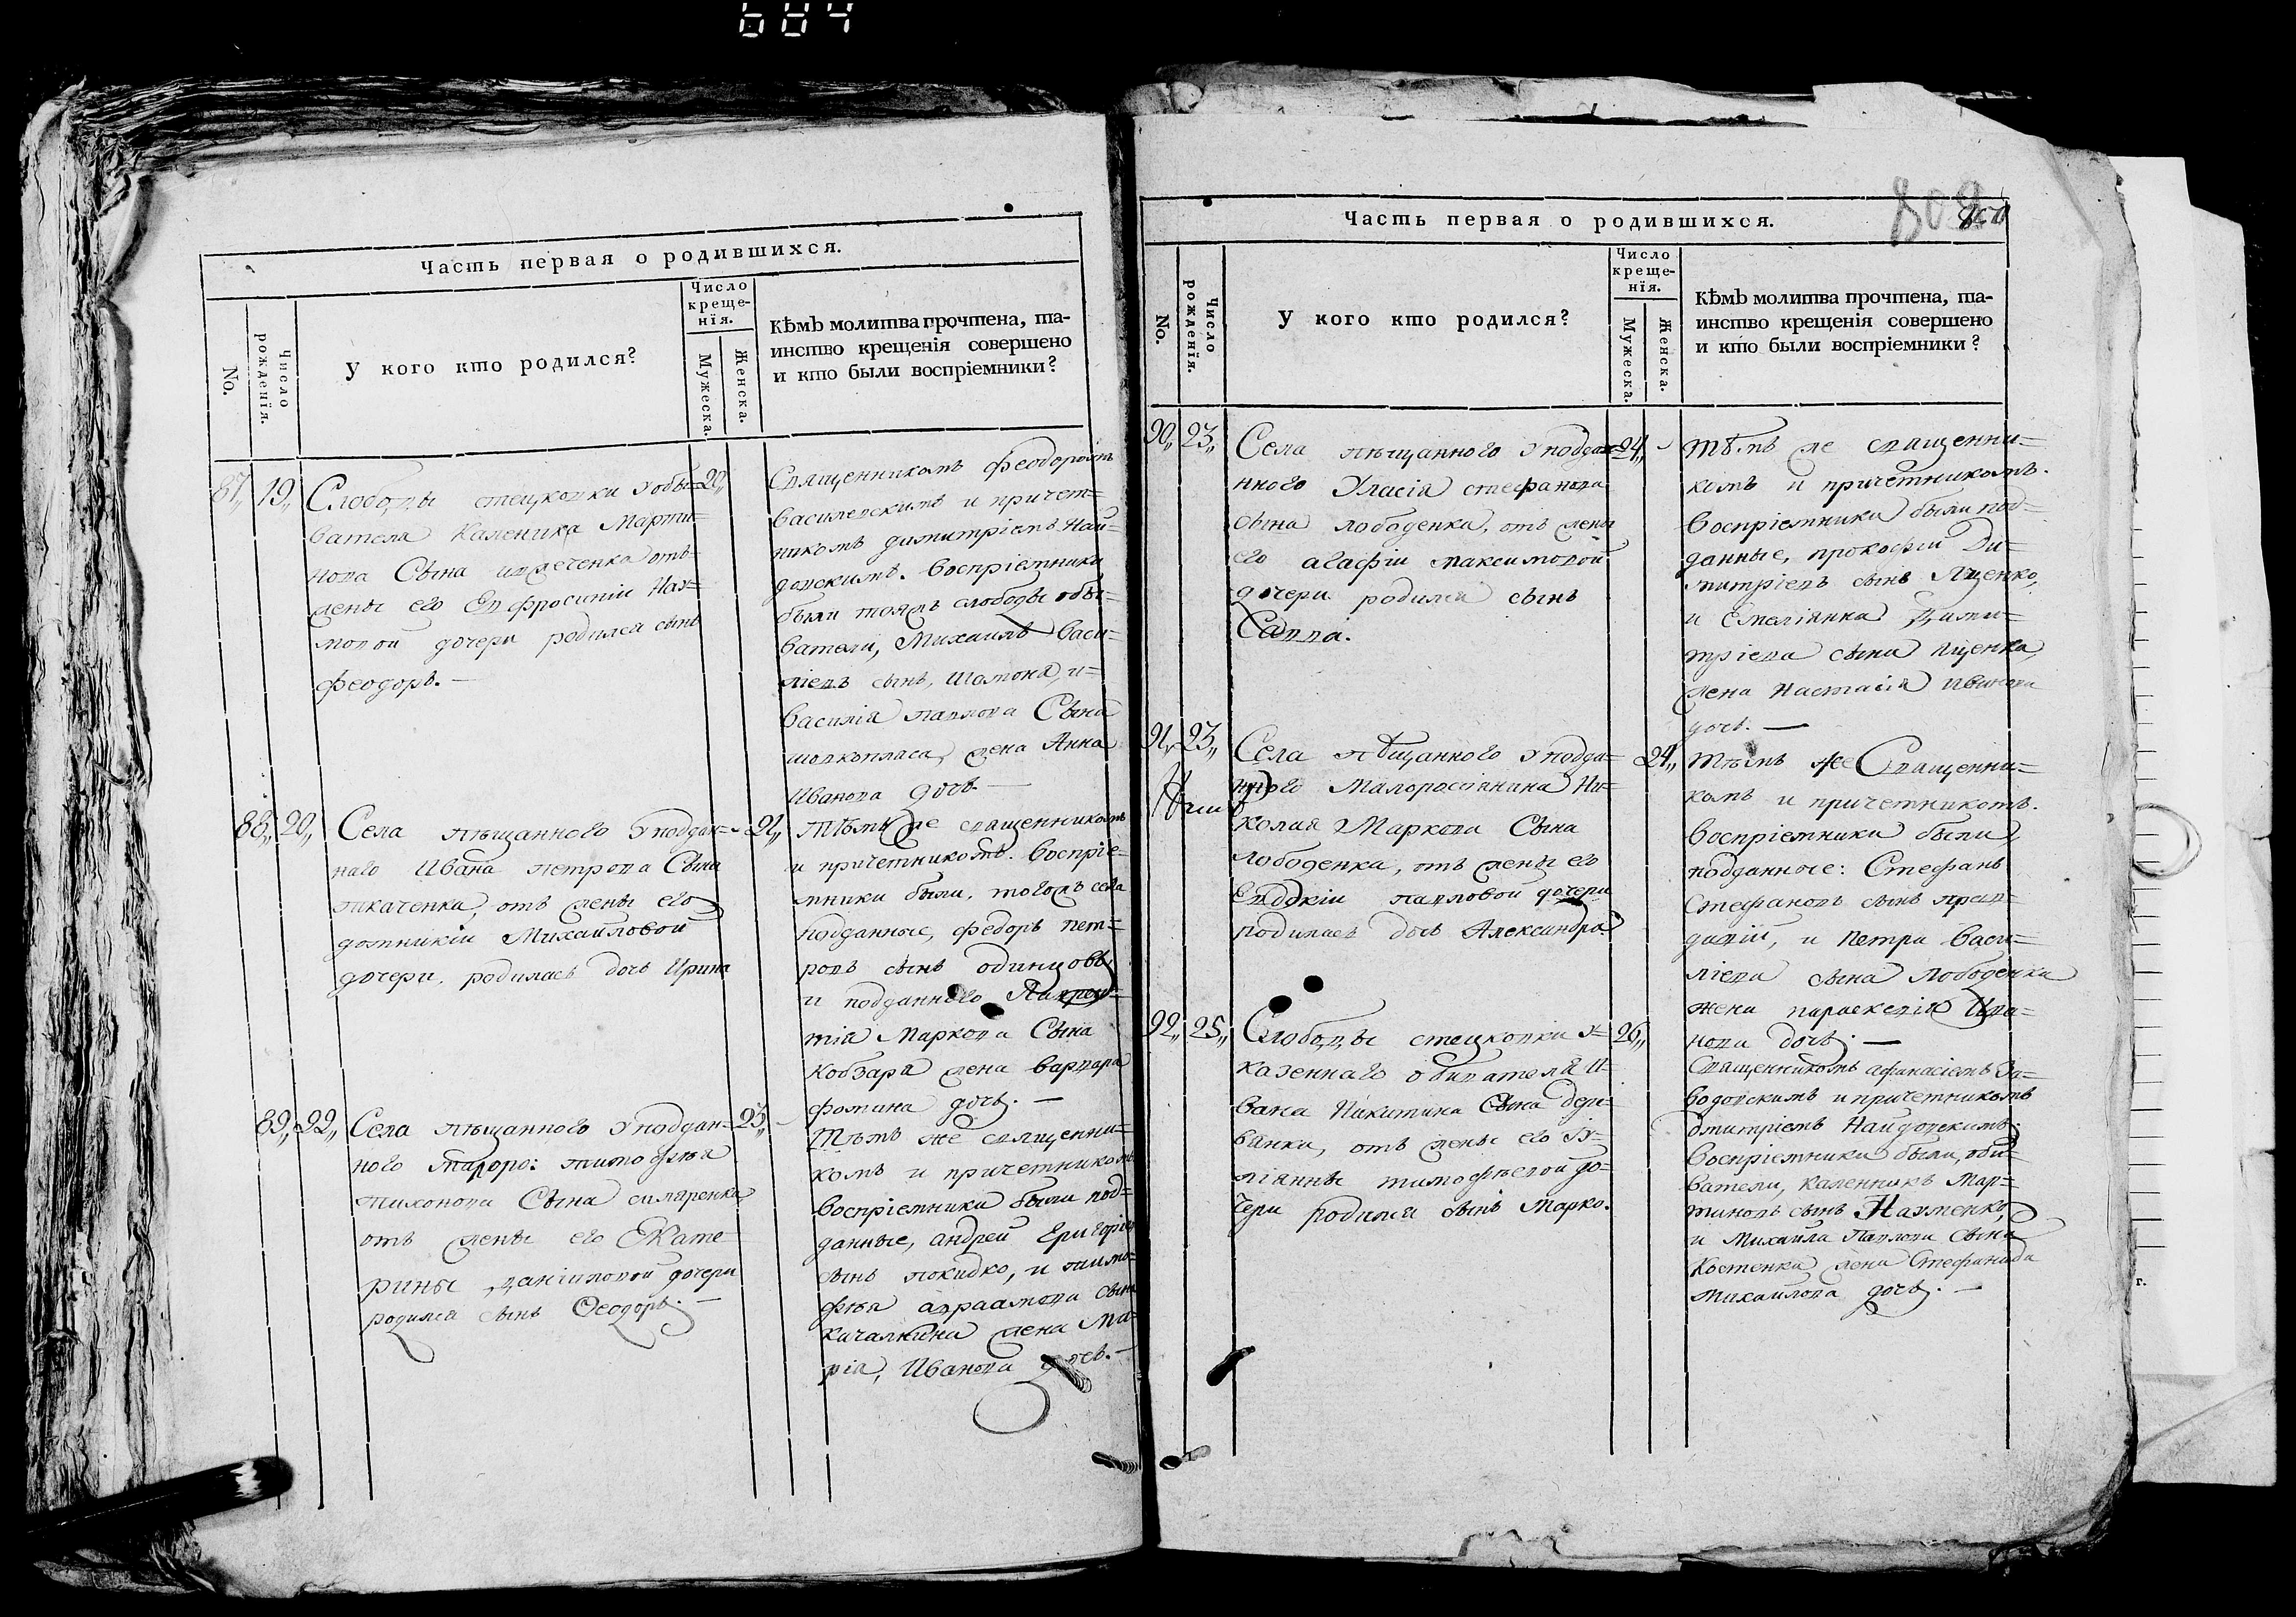 684
Часть первая о родившихся.
No.
Число рожденія.
У кого кто родился?
Число
креще-
нія.
Мужеска.
Женска.
Кѣмъ молитва прочтена, та-
инство крещенія совершено
и кто были воспріемники?
87,, 19,, 20,,
Слободы стецковки у обы=
вателя Каленика Марти=
нова Сына отъ
жены его Евфросиніи Нау=
мовой дочери родился сынъ
феодоръ. —
Священникомъ феодоромъ
василевскимъ и причет=
никомъ димитріемъ Най=
довскимъ. воспріемники
были тояжъ слободы обы=
ватели, Михаилъ Васи=
ліевъ сынъ, и=
василія павлова Сына
жена Анна
Иванова дочь. —
88,, 20,, 21,,
Села пѣщанного у поддан=
наго Ивана петрова Сына
ткаченка, отъ жены его
домникіи Михайловой
дочери, родилась дочь Ирина
Тѣмъ же священникомъ
и причетникомъ. воспріе=
мники были, тогожъ села
подданные, федоръ пет=
ровъ сынъ одинцовъ,
и подданного Лаврен=
тія Маркова Сына
кобзаря жена варвара
фомина дочь. —
89,, 22,, 23,,
Села пѣщанного у поддан=
ного малоро: тимофѣя
тихонова Сына скляренка
отъ жены его Екате=
рины даніиловой дочери
родился сынъ Феодоръ. —
Тѣмъ же священни=
комъ и причетникомъ
воспріемники были под=
данные, андрей Григоріевъ
сынъ покидко, и тимо=
фѣя авраамова сына
качалкина жена Ма=
рія, Иванова дочь. —
Часть первая о родившихся.
808
No.
Число рожденія.
У кого кто родился?
Число
креще-
нія.
Мужеска.
Женска.
Кѣмъ молитва прочтена, та-
инство крещенія совершено
и кто были воспріемники?
90,, 23,, 24,,
Села пѣщанного у поддан=
нного Уласія стефанова
сына лободенка, отъ жены
его агафіи максимовой
дочери родился сынъ
Савва.
Тѣмъ же священни=
комъ и причетникомъ.
воспріемники были под=
данные, прокофій Ди=
митріевъ сынъ Яценко,
и Емеліянка Дими=
тріева сына яценка,
жена настасія иванова
дочь. —
91,, 23,, 24,,
Села пѣщанного у подда=
нного Малоросіянина Ни=
колая Маркова Сына
лободенка, отъ жены его
Евдокіи павловой дочери
родилась дочь Александра.
Тѣмъ же Священни=
комъ и причетникомъ.
воспріемники были,
подданные: Стефанъ
стефановъ сынъ
и петра васи=
ліева сына лободенка
жена параскевія Ива=
нова дочь. —
92,, 25,, 26,,
Слободы стецковки у=
казеннаго обивателя И=
вана Никитина Сына
отъ жены его Іу=
ліянны тимофѣевой до=
чери родился сынъ Марко.
Священникомъ афанасіемъ
и причетникомъ
дмитріемъ Найдовскимъ.
воспріемники были, оби=
ватели, каленникъ Мар=
тиновъ сынъ Науменко,
и Михайла Павлова Сына
Костенка жена Стефанида
михайлова дочь. —